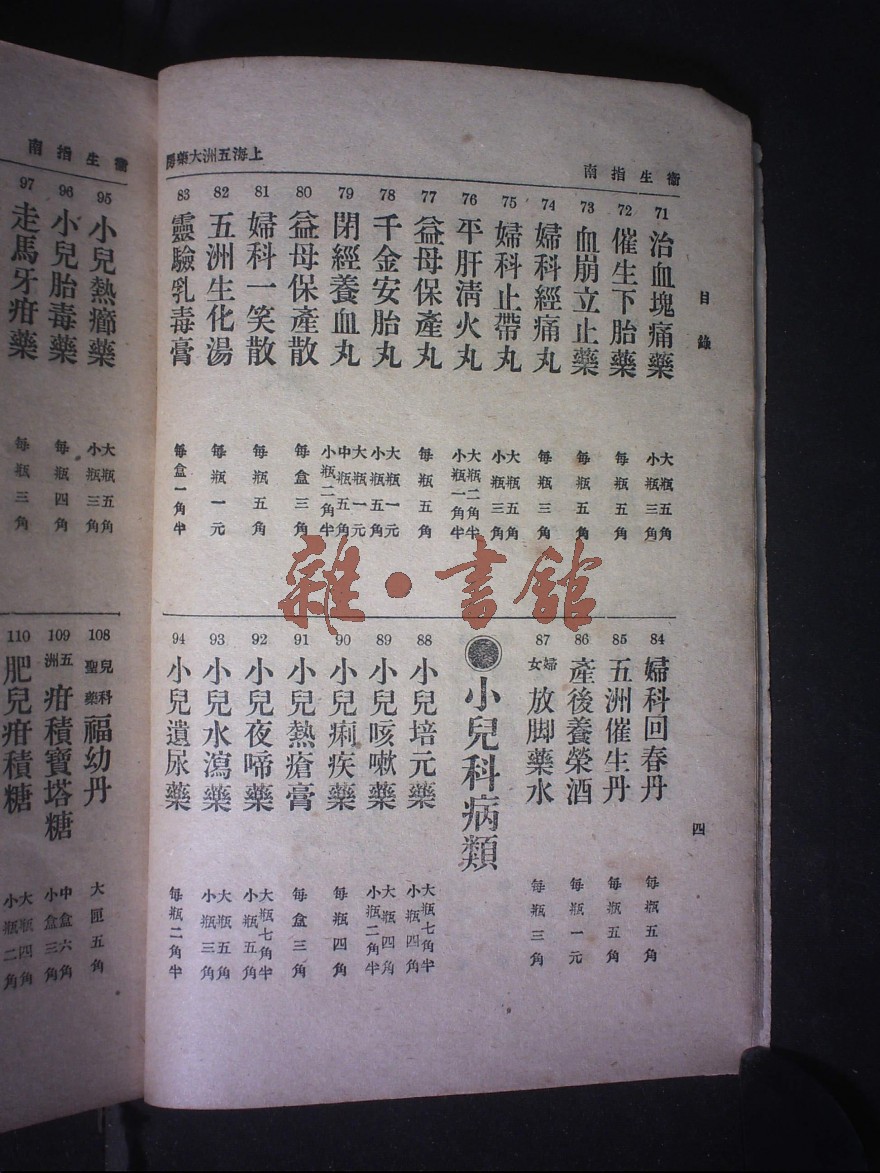 衞生指南
上海五洲大藥房
目錄
四
71 治血塊痛藥 大瓶五角 小瓶三角
72 催生下胎藥 每瓶五角
73 血崩立止藥 每瓶五角
74 婦科經痛丸 每瓶三角
75 婦科止帶丸 大瓶五角 小瓶三角
76 平肝淸火丸 大瓶二角 小瓶一角
77 益母保產丸 每瓶五角
78 千金安胎丸 大瓶一元 小瓶五角
79 閉經養血丸 大瓶一元 中瓶五角 小瓶二角半
80 益母保產散 每盒三角
81 婦科一笑散 每瓶五角
82 五洲生化湯 每瓶一元
83 靈驗乳毒膏 每盒一角半
84 婦科回春丹 每瓶五角
85 五洲催生丹 每瓶五角
86 產後養榮酒 每瓶一元
87 婦女放脚藥水 每瓶三角
小兒科病類
88 小兒培元藥 大瓶七角半 小瓶四角
89 小兒咳嗽藥 大瓶四角 小瓶二角半
90 小兒痢疾藥 每瓶四角
91 小兒熱瘡膏 每盒三角
92 小兒夜啼藥 大瓶七角半 小瓶五角
93 小兒水瀉藥 大瓶五角 小瓶三角
94 小兒遺尿藥 每瓶二角半
衞生指南
95 小兒熱癤藥 大瓶五角 小瓶三角
96 小兒胎毒藥 每瓶四角
97 走馬牙疳藥 每瓶三角
108 兒科聖藥福幼丹 大匣五角
109 五洲疳積寶塔糖 中盒六角 小盒三角
110 肥兒疳積糖 大瓶四角 小瓶二角
雜·書館